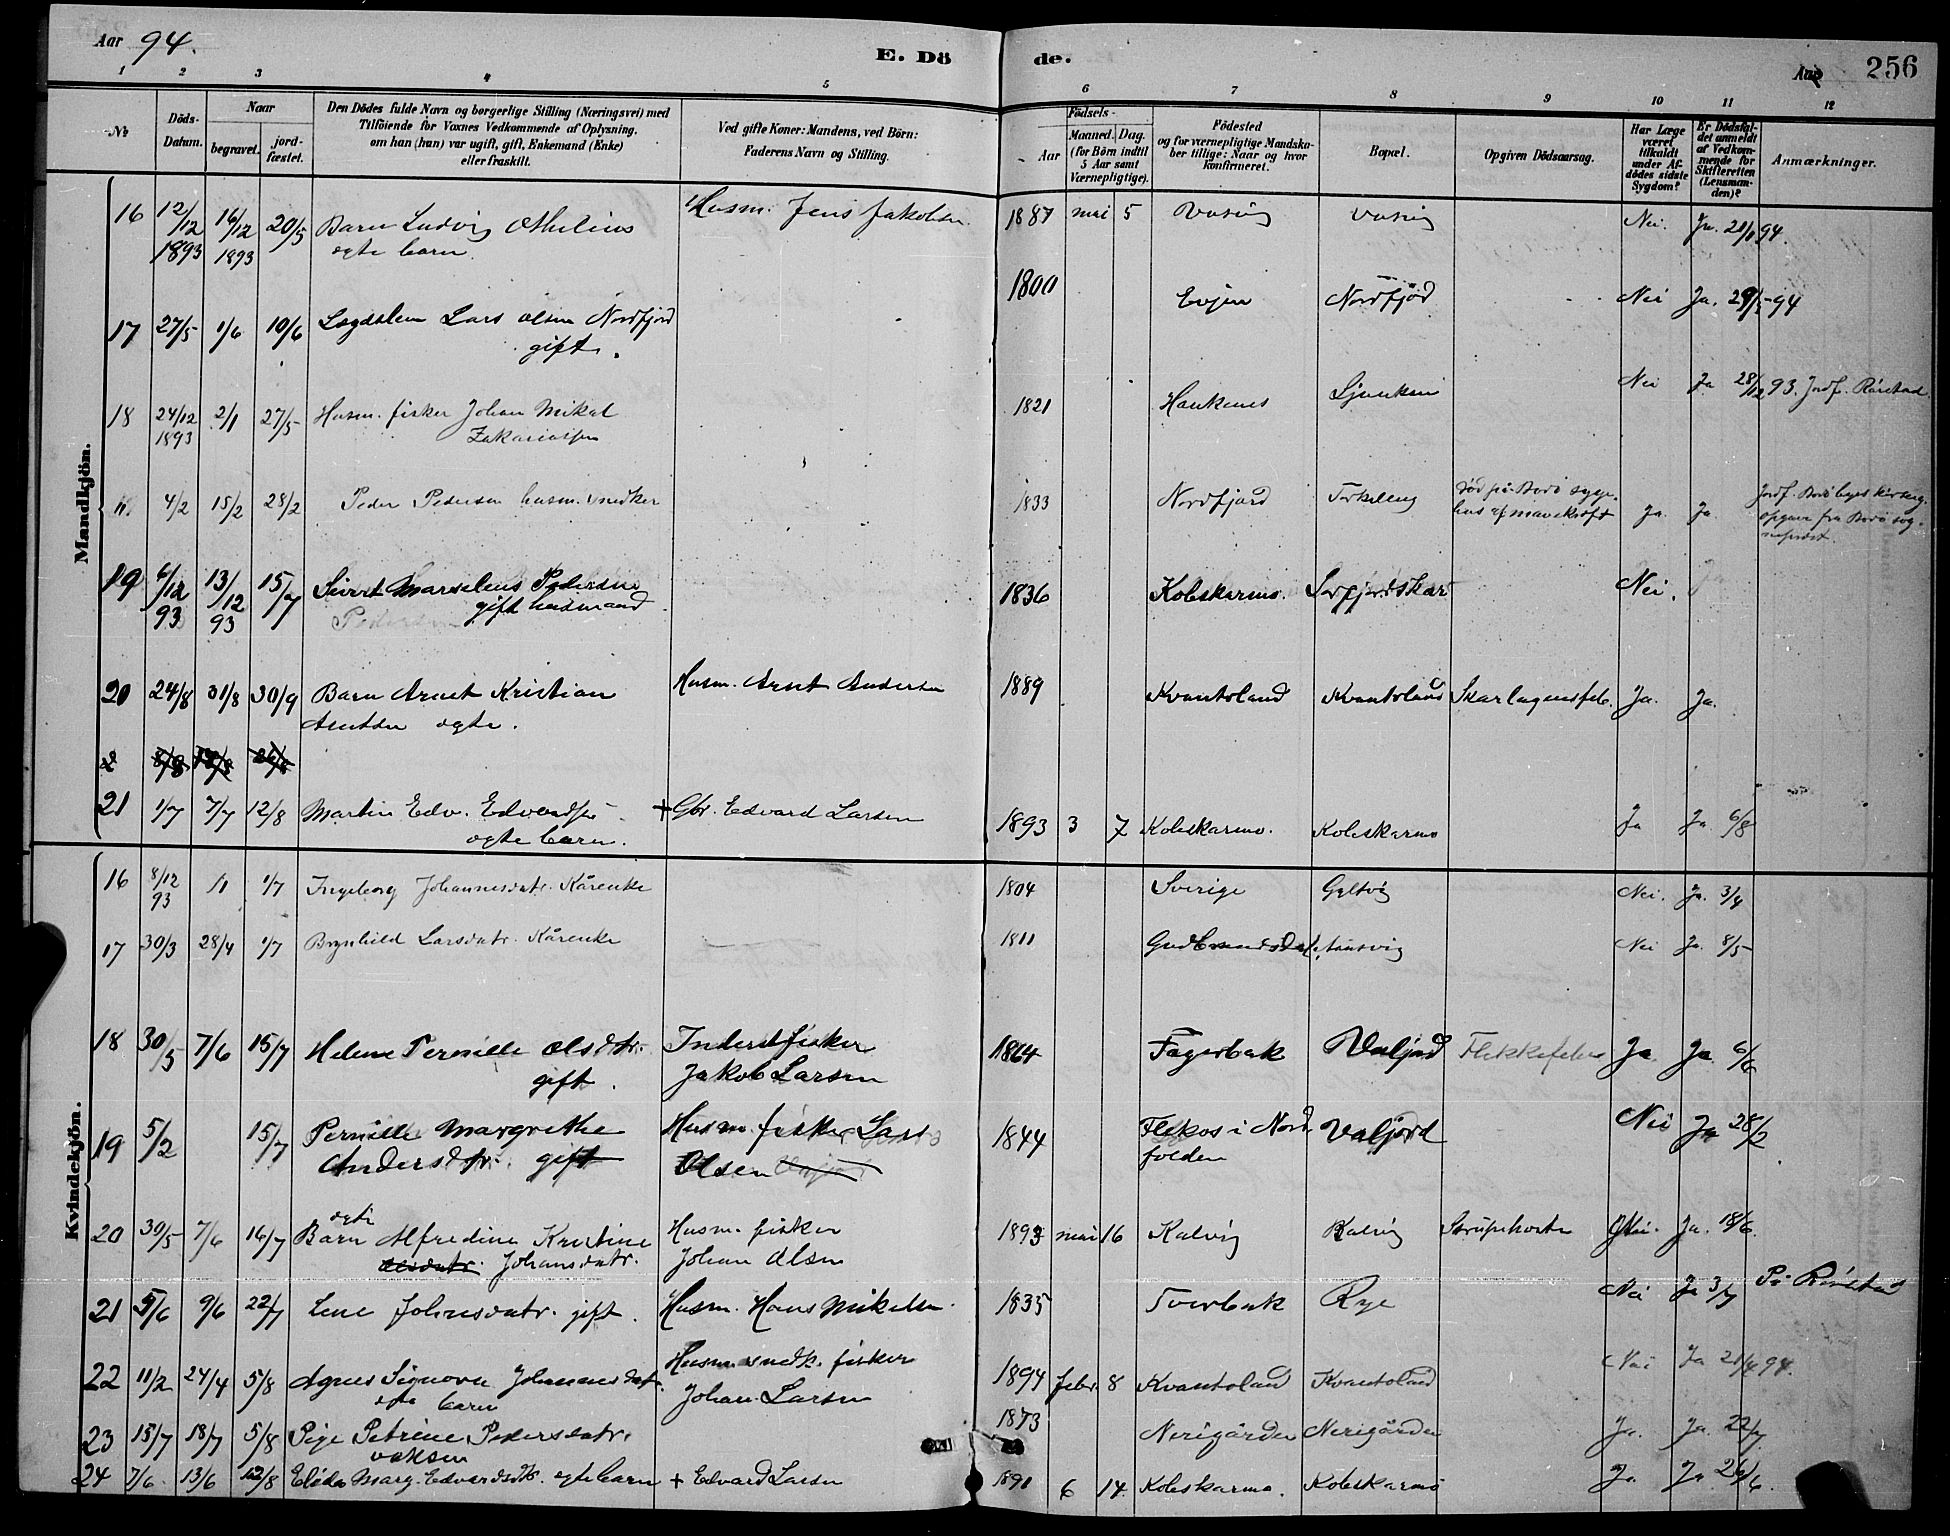 Aar 94.
E. Dö de.
Aar 256
1 2 3 4 5 6 7 8 9 10 11 12
No
Döds-Datum.
Naar
begravet.
jord-fæstet.
Den Dödes fulde Navn og borgerlige Stilling (Næringsvei) med
Tilföiende for Voxnes Vedkommende af Oplysning,
om han (hun) var ugift, gift, Enkemand (Enke)
eller fraskilt.
Ved gifte Koner: Mandens, ved Börn:
Faderens Navn og Stilling.
Födsels-
Aar
Maaned. Dag.
(for Börn indtil
5 Aar samt
Værnepligtige).
Födested
og for værnepligtige Mandska-
ber tillige: Naar og hvor
konfirmeret.
Bopæl.
Opgiven Dödsaarsag.
Har Læge
været
tilkaldt
under Af-
dödes sidste
Sygdom?
Er Dödsfal-
det anmeldt
af Vedkom-
mende for
Skifteretten
(Lensman-
den)?
Anmærkninger.
Mandkjön.
16 12/12 1893 16/12 1893 20/5 Barn Ludvig Othelius Husm. Jens Jakobsen 1887 mai 5 Nei. Ja. 94.
ægte barn.
17 27/5 1/6 10/6 Lægdslem Lars Olsen Nordfjord 1800 Evjen Nordfjord Nei Ja. 29/5 -94
gift.
18 24/12 1893 2/1 27/5 Husm. fisker Johan Mikal 1821 Haukenes Nei Ja 28/12 93. Jordf. Rörstad
Zakariassen
4/2 15/2 28/2 Peder Pedersen husm. snedker 1833 Nordfjord död på Bodö syge- Ja Ja. Jordf. Bodö
hus af mavekræft
opgave fra Bodö sog-
nepræst.
19 6/12 93 13/12 93 15/7 Sivert Marselius Pedersen 1836 Kobskarmo. Sørfjordskar Nei.
gift husmand
Pedersen
20 24/8 31/8 30/9 Barn Arnet Kristian Husm. Arnt Andersen 1889 Kvantoland Kvantoland Skarlagensfeb. Ja. Ja.
Arntsen ægte.
21 1/7 7/7 12/8 Martin Edv. Edvardsen + Gbr. Edvard Larsen 1893 3 7 Kobskarmo. Kobskarmo Ja Ja 6/8
ægte barn.
Kvindekjön.
16 8/12 93 1/1 1/7 Ingeborg Johannesdatr. Kårenke 1804 Sverige Geltvig Nei. Ja. 3/4
17 30/3 28/4 1/7 Brynhild Larsdatr. Kårenke 1811 Gudbrandsdal. Nei Ja. 8/5
18 30/5 7/6 15/7 Helene Pernille Olsdtr. Inderst fisker 1864 Fagerbak Valjord Flekkefeber Ja Ja 6/6
gift. Jakob Larsen
19 5/2 15/7 Pernille Margrethe Husm. fisker Lars 1844 Flekos i Nord- Valjord Nei Ja 28/2
Andersdtr. gift Olsen folden
20 30/5 7/6 16/7 Barn ægte Alfredine Kristine Husm. fisker 1893 mai 16 Kalvig Kalvig Strupehoste Nei. Ja. 18/6.
Olsdatr. Johansdatr. Johan Olsen
21 5/6 9/6 22/7 Lene Johnsdatr. gift. Husm. Hans Mikelsen. 1835 Tverbak Rye Nei Ja 3/7 På Rörstad
22 11/2 24/4 5/8 Agnes Signora Johannesdat. Husm. snedk. fisker 1894 febr. 8 Kvantoland Kvantoland Nei Ja 21/4 94.
ægte barn Johan Larsen
23 15/7 18/7 5/8 Pige Petrine Pedersdatr. 1873 Nerigården Nerigården Ja. Ja. 22/7
voksen
24 7/6. 13/6 12/8 Elida Marg. Edvardsdtr. ægte barn + Edvard Larsen 1891 6 14. Kobskarmo. Kobskarmo Ja Ja 26/6.